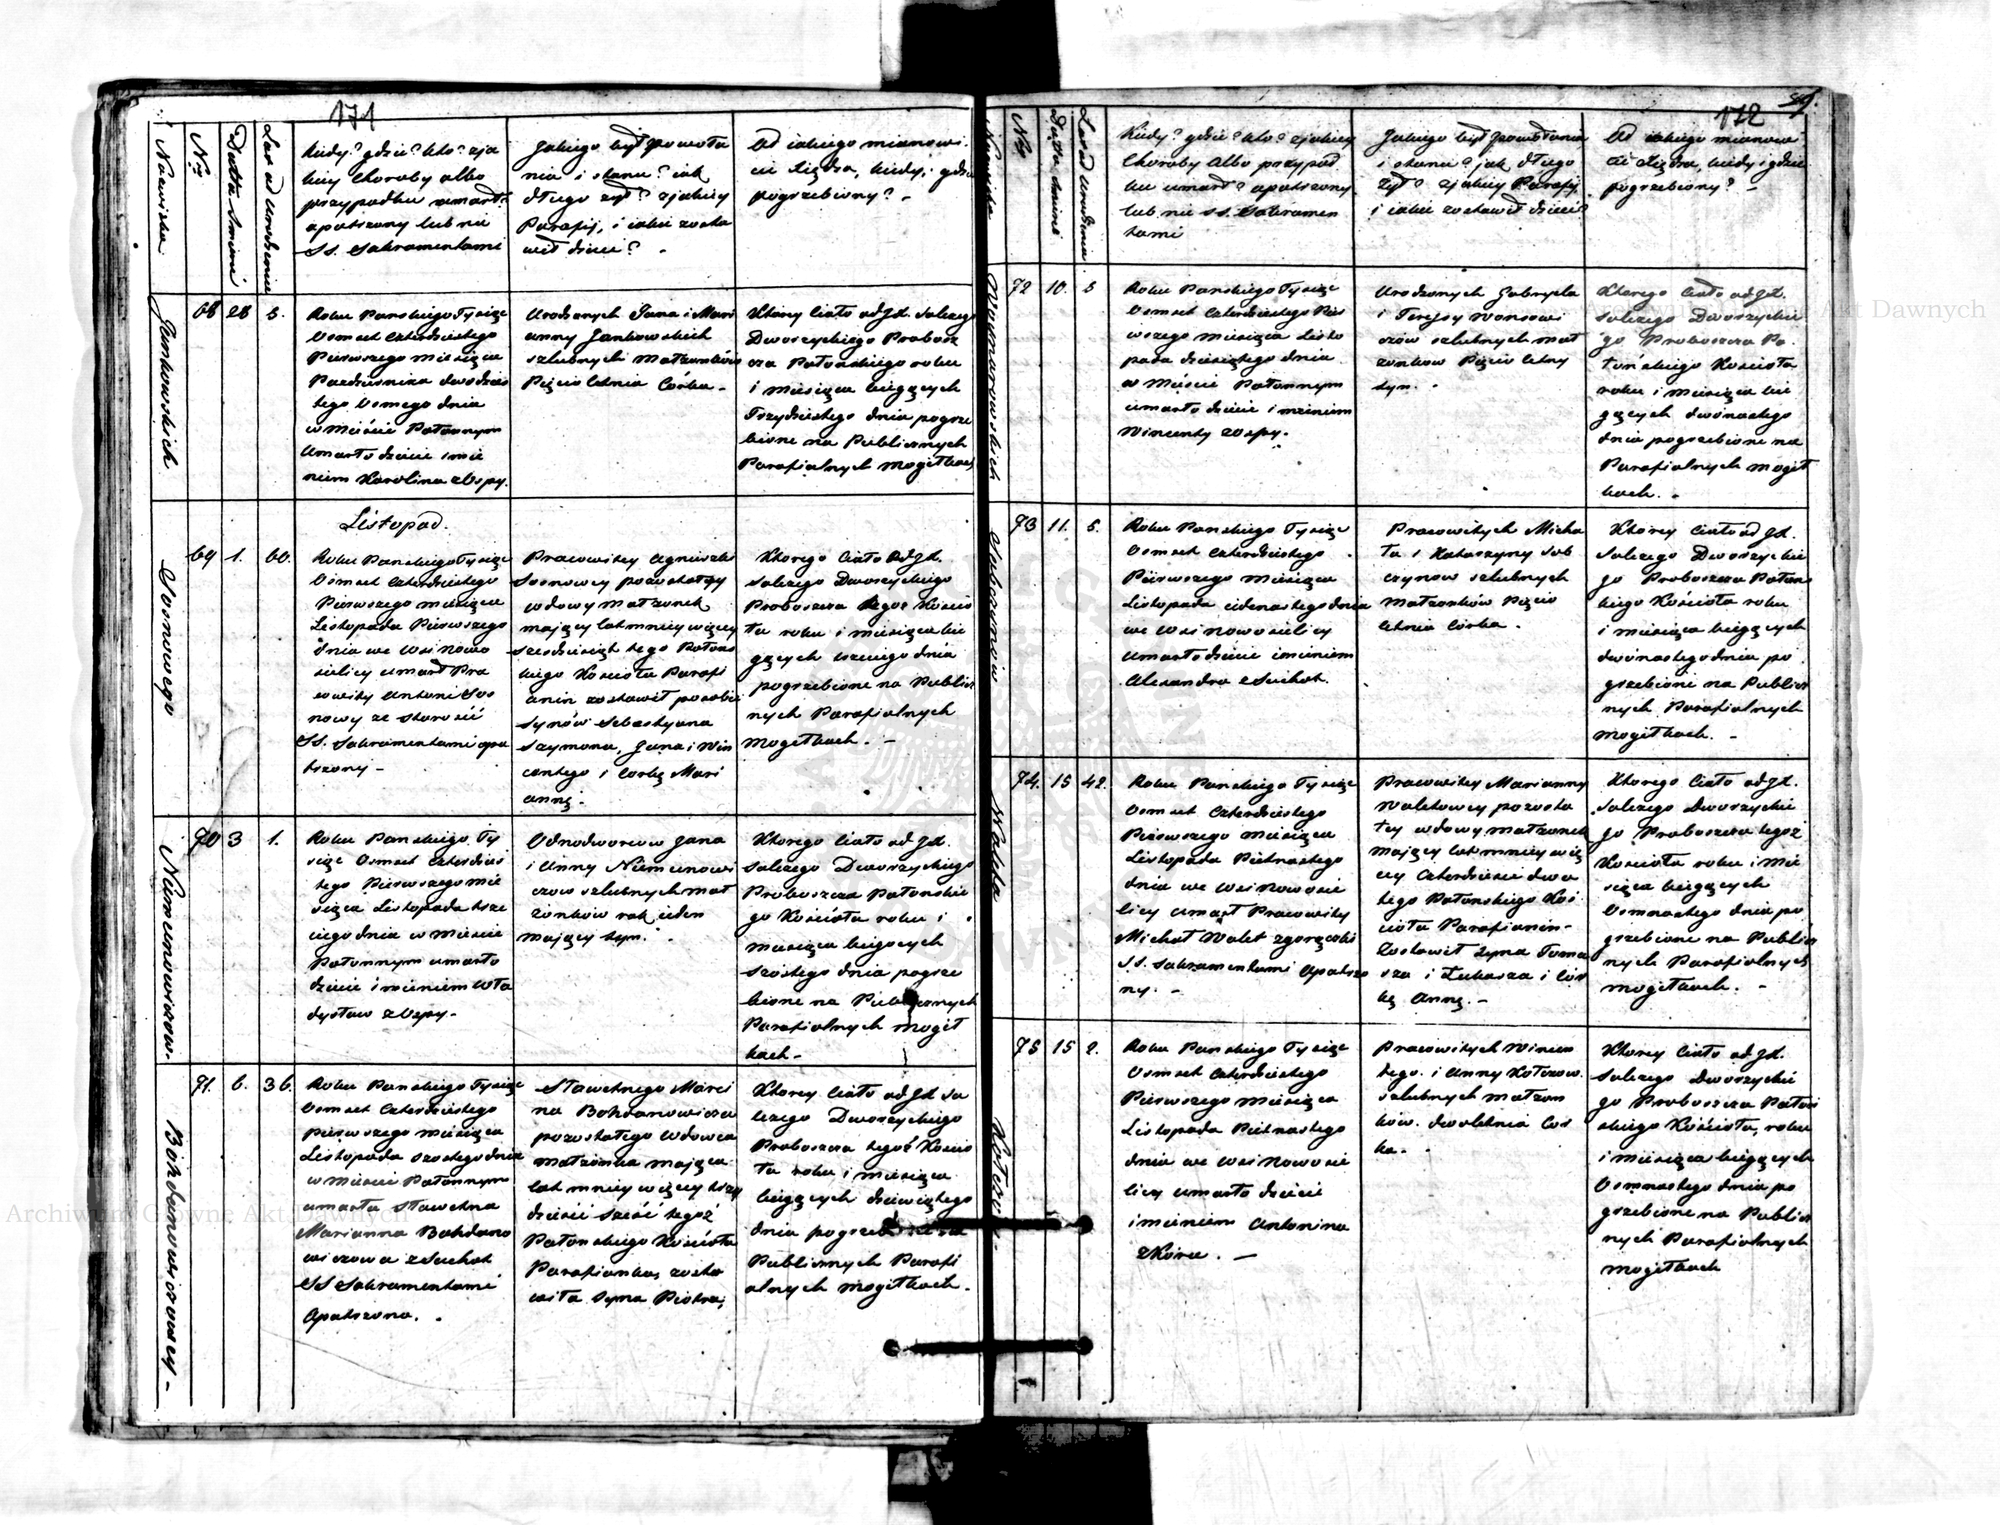 171
Nazwiska
Nr
Datta Smierci
Lat od urodzenia
Kiedy? gdzie? kto? z ja
kiey Choroby albo
przypadku umarł?
opatrzony lub nie
SS. Sakramentami
Jakiego był powoła
nia i stanu? iak
długo żył? z jakiey
Parafij, i iakie zosta
wił dzieci?
Od iakiego mianowi
cie Xiędza, kiedy, i gdzie
pogrzebiony? -
Jankowskich
68
28
5.
Roku Panskiego Tysiąc
Osmset Czterdziestego
Pierwszego miesiąca
Pazdziernika dwudzies
tego Osmego dnia
w Mieście Połonnym
Umarło dziecie imie
niem Karolina z Ospy.
Urodzonych Jana i Mari
anny Jankowskich
szlubnych Małzonków
Pięcio letnia Córka -
Którey Ciało od Jx. Salezego
Dworzyckiego Probosz
cza Połońskiego roku
i miesiąca bieżących
Trzydziestego dnia pogrze
bione na Publicznych
Parafialnych mogiłkach
Listopad.
Sosnowego
69
1.
60.
Roku Panskiego Tysiąc
Osmset Czterdziestego
Pierwszego miesiąca
Listopada Pierwszego
dnia we Wsi Nowo
sielicy umarł Pra
cowity Antoni Sos
nowy ze starości
SS. Sakramentami opa
trzony -
Pracowitey Agnieszki
Sosnowey pozostałey
wdowy małzonek
maiący lat mniey więcey
szesdziesiąt tego Połons
kiego Kościoła Parafi
anin zostawił po sobie
Synów Sebastyana
Szymona, Jana i Win
centego i Corkę Mari
annę.
Ktorego Ciało od Jx.
Salezego Dworzyckiego
Proboszcza tegoż Kościo
ła roku i miesiąca bie
żących trzeciego dnia
pogrzebione na Publicz
nych Parafialnych
Mogiłkach. -
Niemunowiczow.
70
3
1.
Roku Panskiego Ty
siąc Osmset Czterdzies
tego Pierwszego mie
siąca Listopada trze
ciego dnia w Mieście
Połonnym umarło
dziecie imieniem Wła
dysław z Ospy -
Odnodworcow Jana
i Anny Niemunowi
czow szlubnych mał
żonków rok ieden
maiący syn.
Ktorego Ciało od Jx.
Salezego Dworzyckiego
Proboszcza Połonskie
go Kościoła roku i
miesiąca bieżących
szostego dnia pogrze
bione na Publicznych
Parafialnych mogił
kach -
Bohdanowiczowey -
71.
6.
36.
Roku Panskiego Tysiąc
Osmset Czterdziestego
pierwszego miesiąca
Listopada szostego dnia
w Mieście Połonnym
umarła Sławetna
Marianna Bohdano
wiczowa z Suchot
SS Sakramentami
Opatrzona.
Sławetnego Marci
na Bohdanowicza
pozostałego Wdowca
małzonka maiąca
lat mniey więcey trzy
dzieści sześć tegoż
Połonskiego Kościoła
Parafianka, zosta
wiła Syna Piotra,
Ktorey Ciało od Jx Sa
lezego Dworzyckiego
Proboszcza tegoż Kościo
ła roku i miesiąca
bieżących dziewiątego
dnia pogrzebione na
Publicznych Parafi
alnych mogiłkach.
172
Nazwiska
Nr
Datta śmierci
Lat od urodzenia
Kiedy? gdzie? kto? z jakiey
Choroby albo przypad
ku umarł? opatrzony
lub nie SS. Sakramen
tami
Jakiego był powołania
i stanu? jak długo
żył? z jakiey Parafij,
i iakie zostawił dzieci?
Od iakiego mianowi
cie Xiędza, kiedy i gdzie
pogrzebiony? -
72
10.
5
Roku Panskiego Tysiąc
Osmset Czterdziestego Pier
wszego miesiąca Listo
pada dziesiątego dnia
w Mieście Połonnym
umarło dziecie imieniem
Wincenty z Ospy.
Urodzonych Gabryela
i Teresy
szlubnych mał
zonkow Pięcio letny
syn.
Ktorego Ciało od Jx.
Salezego Dworzyckie
go Proboszcza Po
łońskiego Kościoła
roku i miesiąca bie
żących dwónastego
dnia pogrzebione na
Parafialnych mogił
kach. -
73
11.
5.
Roku Panskiego Tysiąc
Osmset Czterdziestego
Pierwszego miesiąca
Listopada iedenastego dnia
we Wsi Nowosielicy
Umarło dziecie imieniem
Alexandra z Suchot.
Pracowitych Micha
ła i Katarzyny
szlubnych
Małzonków Pięcio
letnia Córka.
Ktorey Ciało od Jx.
Salezego Dworzyckie
go Proboszcza Połons
kiego Kościoła roku
i miesiąca bieżących
dwónastego dnia po
grzebione na Publicz
nych Parafialnych
mogiłkach. -
Waleta
74.
15
42.
Roku Panskiego Tysiąc
Osmset Czterdziestego
Pierwszego miesiąca
Listopada Pietnastego
dnia we Wsi Nowosie
licy umarł Pracowity
Michał Walet z gorączki
SS. Sakramentami Opatrzo
ny. -
Pracowitey Marianny
Waletowey pozosta
łey wdowy małzonek
maiący lat mniey wię
cey Czterdzieści dwa
tego Połonskiego Koś
cioła Parafianin -
Zostawił Syna Toma
sza i Łukasza i Cor
kę Annę. -
Ktorego Ciało od Jx.
Salezego Dworzyckie
go Proboszcza tegoż
Kościoła roku i mie
siąca bieżących
Osmnastego dnia po
grzebione na Publicz
nych Parafialnych
mogiłkach. -
75
15
2.
Roku Panskiego Tysiąc
Osmset Czterdziestego
Pierwszego miesiąca
Listopada Pietnastego
dnia we Wsi Nowosie
licy umarło dziecie
imieniem Antonina
z Kóru. -
Pracowitych Wincen
tego i Anny
szlubnych małzon
ków. dwoletnia Cór
ka.
Ktorey Ciało od Jx.
Salezego Dworzyckie
go Proboszcza Połoń
skiego Kościoła, roku
i miesiąca bieżących
Osmnastego dnia po
grzebione na Publicz
nych Parafialnych
mogiłkach
Archiwum Główne Akt Dawnych
Archiwum Główne Akt Dawnych